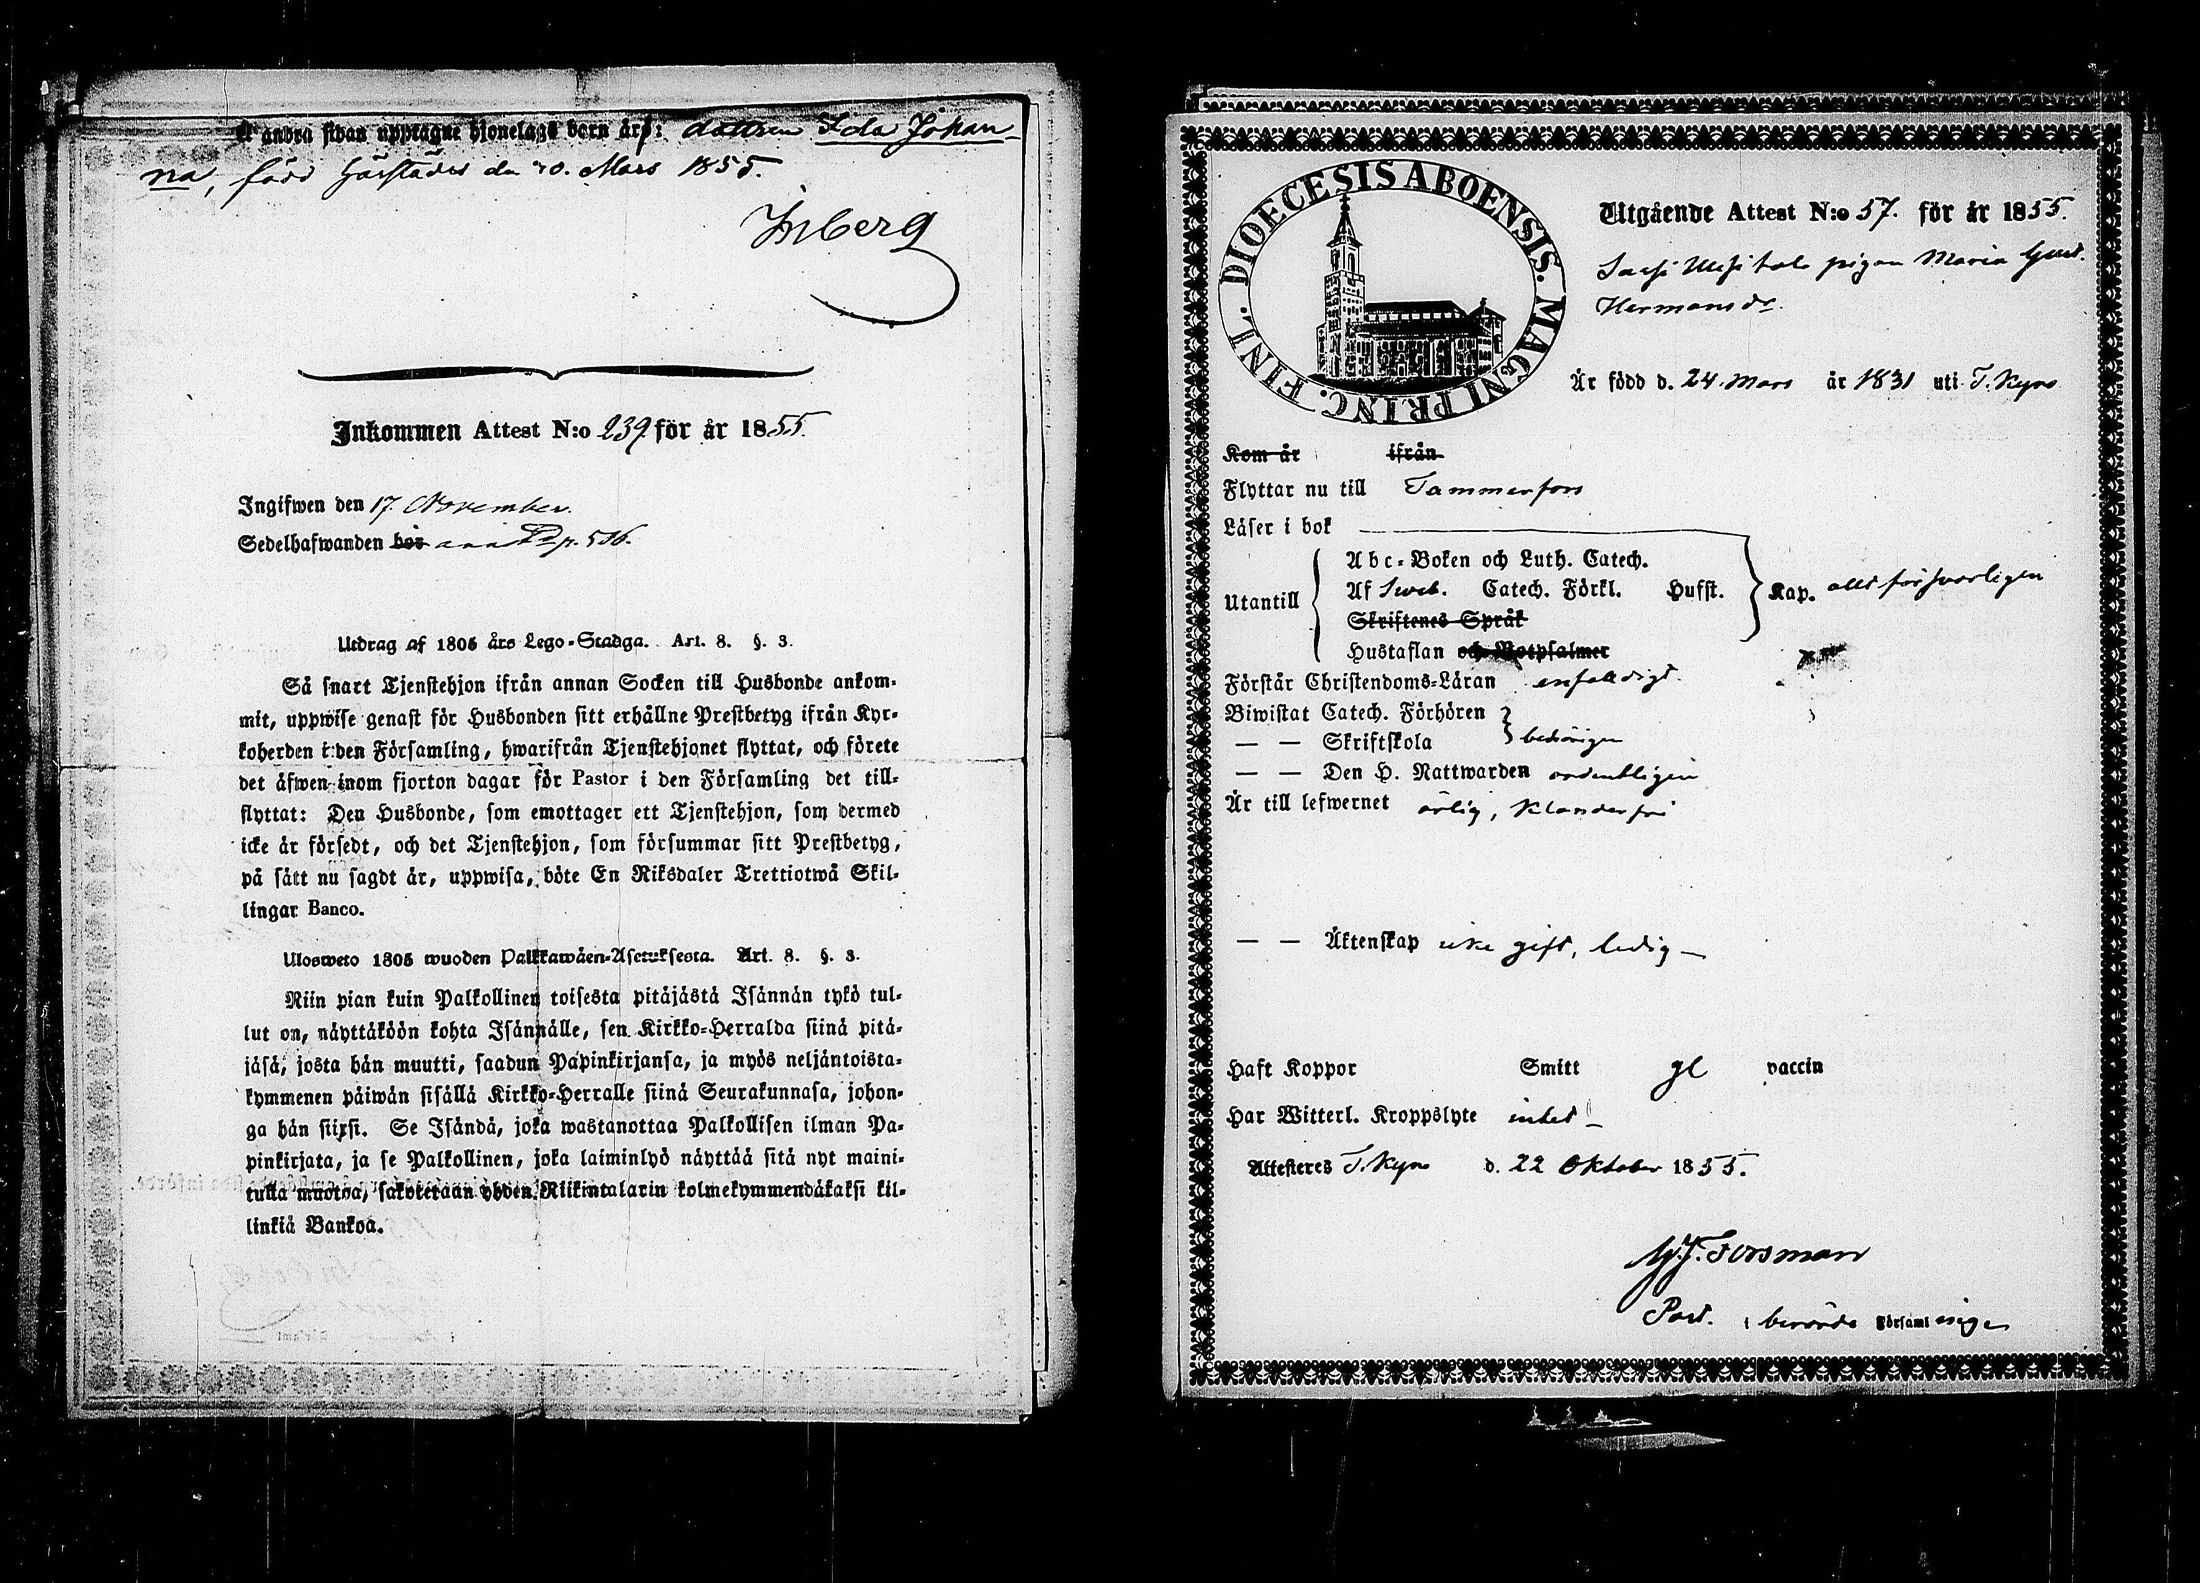 å andra sidan upptagne hjonelags barn är: dottren Ida Johan-
na, född härstädes den 20. Mars 1855.
Inberg
Inkommen Attest N:o 239 för år 1855.
Ingifwen den 17. November.
Sedelhafwanden bor p. 536.
Utdrag af 1805 års Lego-Stadga. Art. 8. §. 3.
Så snart Tjenstehjon ifrån annan Socken till Husbonde ankom-
mit, uppwise genast för Husbonden sitt erhållne Prestbetyg ifrån Kyr-
koherden i den Församling, hwarifrån Tjenstehjonet flyttat, och förete
det äfwen inom fjorton dagar för Pastor i den Församling det till-
flyttat: Den Husbonde, som emottager ett Tjenstehjon, som dermed
icke är försedt, och det Tjenstehjon, som försummar sitt Prestbetyg,
på sätt nu sagdt är, uppwisa, böte En Riksdaler Trettiotwå Skil-
lingar Banco.
Ulosweto 1805 wuoden Palkkawäen-Asetuksesta. Art. 8. §. 3.
Niin pian kuin Palkollinen toisesta pitäjästä Isännän tykö tul-
lut on, näyttäköön kohta Isännälle, sen Kirkko-Herralda siinä pitä-
jäsä, josta hän muutti, saadun Papinkirjansa, ja myös neljäntoista-
kymmenen päiwän sisällä Kirkko-Herralle siinä Seurakunnasa, johon-
ga hän siirsi. Se Isändä, joka wastanottaa Palkollisen ilman Pa-
pinkirjata, ja se Palkollinen, joka laiminlyö näyttää sitä nyt maini-
tulla muotoa, sakotetaan yhden Riikintalarin kolmekymmendäkaksi kil-
linkiä Bankoa.
DIOECESIS ABOENSIS. MAGNI PRINC. FINL.
Utgående Attest N:o 57. för år 1855.
pigan Maria Gust.
Hermansdr
Är född d. 24 Mars år 1831 uti T. Kyro
Kom år ifrån
Flyttar nu till Tammerfors
Läser i bok
Utantill
Abc-Boken och Luth. Catech.
Af Sveb. Catech. Förkl. Husst. Kap. allt försvarligen
Skriftenes Språk
Hustaflan och Botpsalmer
Förstår Christendoms-Läran enfaldigt
Biwistat Catech. Förhören
— — Skriftskola behörigen
— — Den H. Nattwarden ordentligen
Är till lefwernet ärlig, klanderfri
— — Äktenskap icke gift, ledig —
Haft Koppor Smitt gl vaccin
Har Witterl. Kroppslyte intet
Attesteres T. Kyro d. 22 Oktober 1855.
G.J. Forsman
Past. i berörde Församlinge